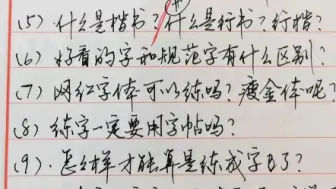 (5) 什么是楷书？什么是行书？行楷？
(6) 好看的字和规范字有什么区别？
(7) 网红字体可以练吗？瘦金体呢？
(8) 练字一定要用字帖吗？
(9). 怎么样才能算是练成字了？